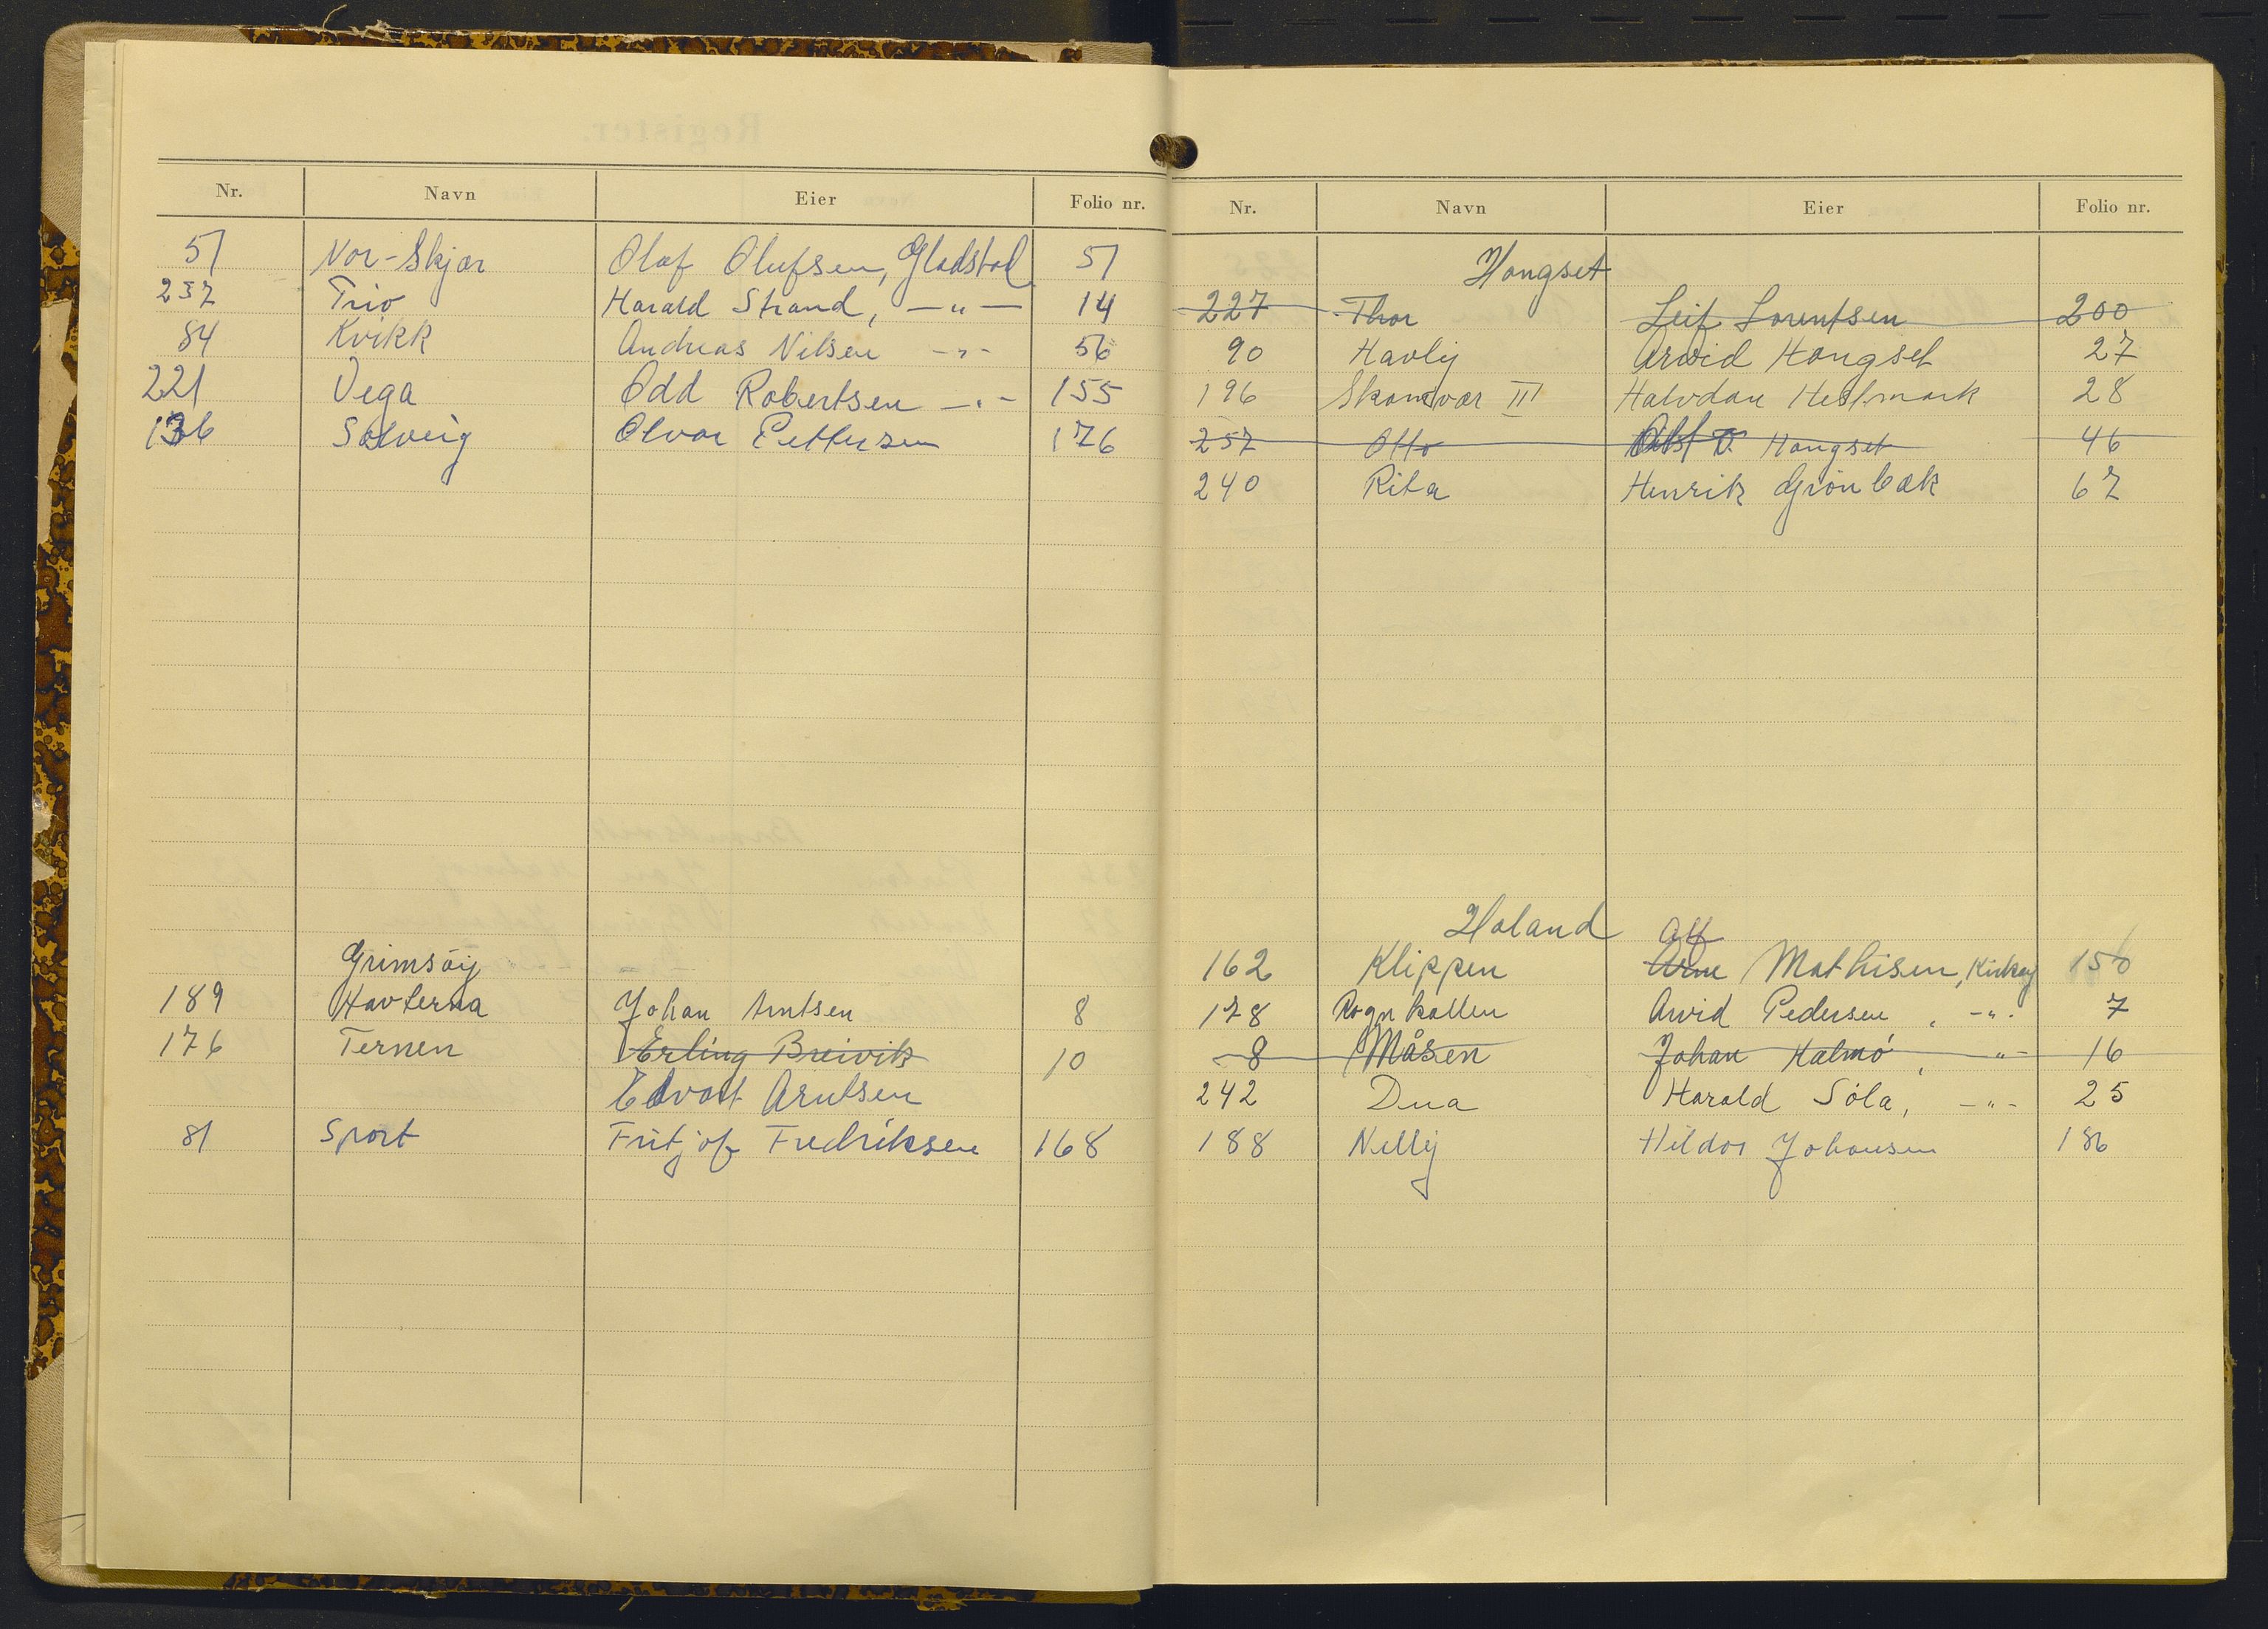 Nr. Navn Eier Folio nr.
51 Nor-Skjær Olaf Olufsen, Gladstad 51
237 Trio Harald Strand, —"— 14
84 Kvikk Andreas Nilsen -"- 56
221 Vega Odd Robertsen —"- 155
136 Solveig Olvar Pettersen 176
Grimsöy
189 Havterna Johan Arntsen 8
176 Ternen Erling Breivik 10
Edvart Arntsen
81 Sport Fritjof Fredriksen 168
Nr. Navn Eier Folio nr.
Hongset
227 Thor Leif Lorentsen 200
90 Havly Arvid Hongset 27
196 Skomvær III Halvdan Hestmark 28
257 Otto Hongset 46
240 Rita Henrik Grönbæk 67
Holand
Alf
162 Klippen Arne Mathisen, Kirkøy 150
178 Rognkallen Arvid Pedersen, -"- 7
8 Måsen Johan Kalmö, "- 16
242 Dua Harald Sóla, -"- 25
188 Nelly Hildor Johansen 186